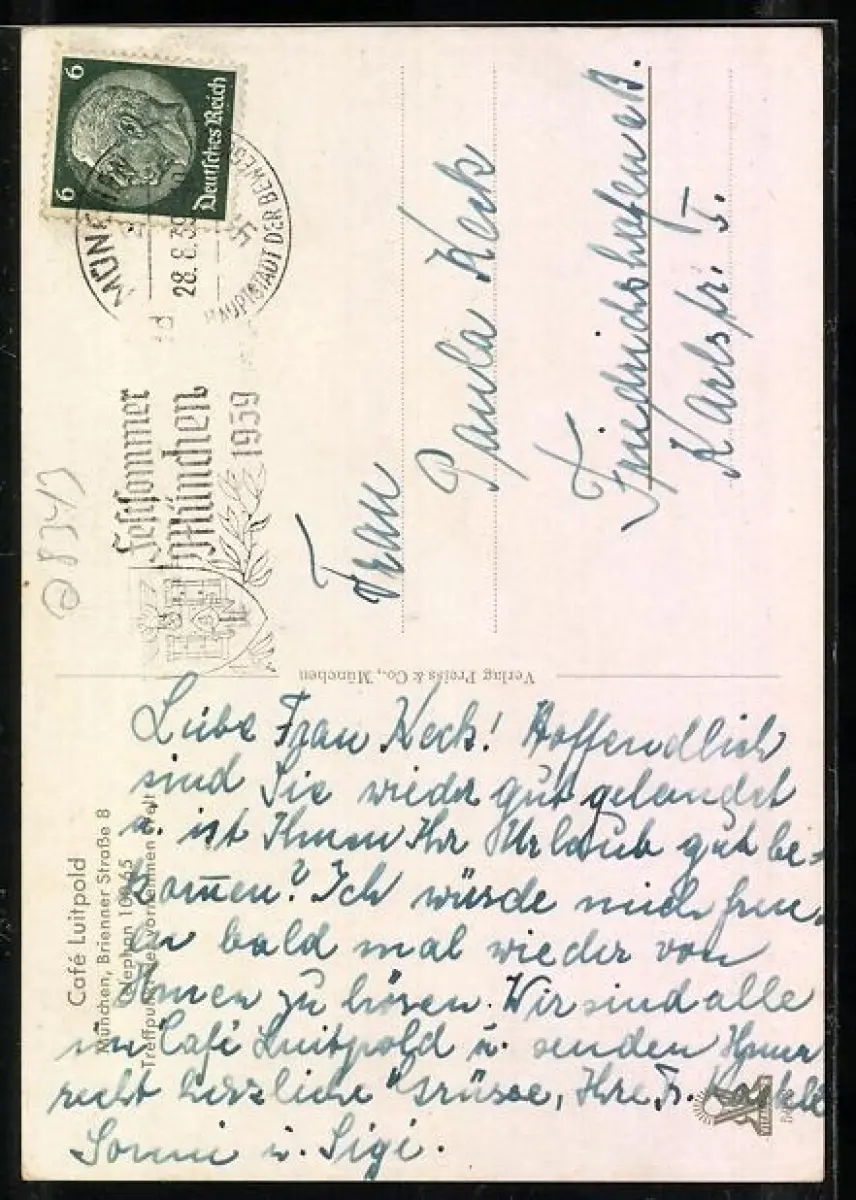 6
6
Deutsches Reich
MÜNCHEN
28.8.39
HAUPTSTADT DER BEWEG
d
Festsommer
München
1939
@8343
Frau
Paula Keck
Friedrichshafen a/B.
Karlstr. 5.
Verlag Preiss & Co., München
Café Luitpold
München, Brienner Straße 8
Treffpunkt der vornehmen Welt
Liebe Frau Keck! Hoffendlich
sind Sie wieder gut gelandet
u. ist Ihnen Ihr Urlaub gut be-
kommen? Ich würde mich freu-
en bald mal wieder von
Ihnen zu hören. Wir sind alle
im Café Luitpold u. senden Ihnen
recht herzliche Grüsse, Ihre Fr.
Sonni u. Sigi.